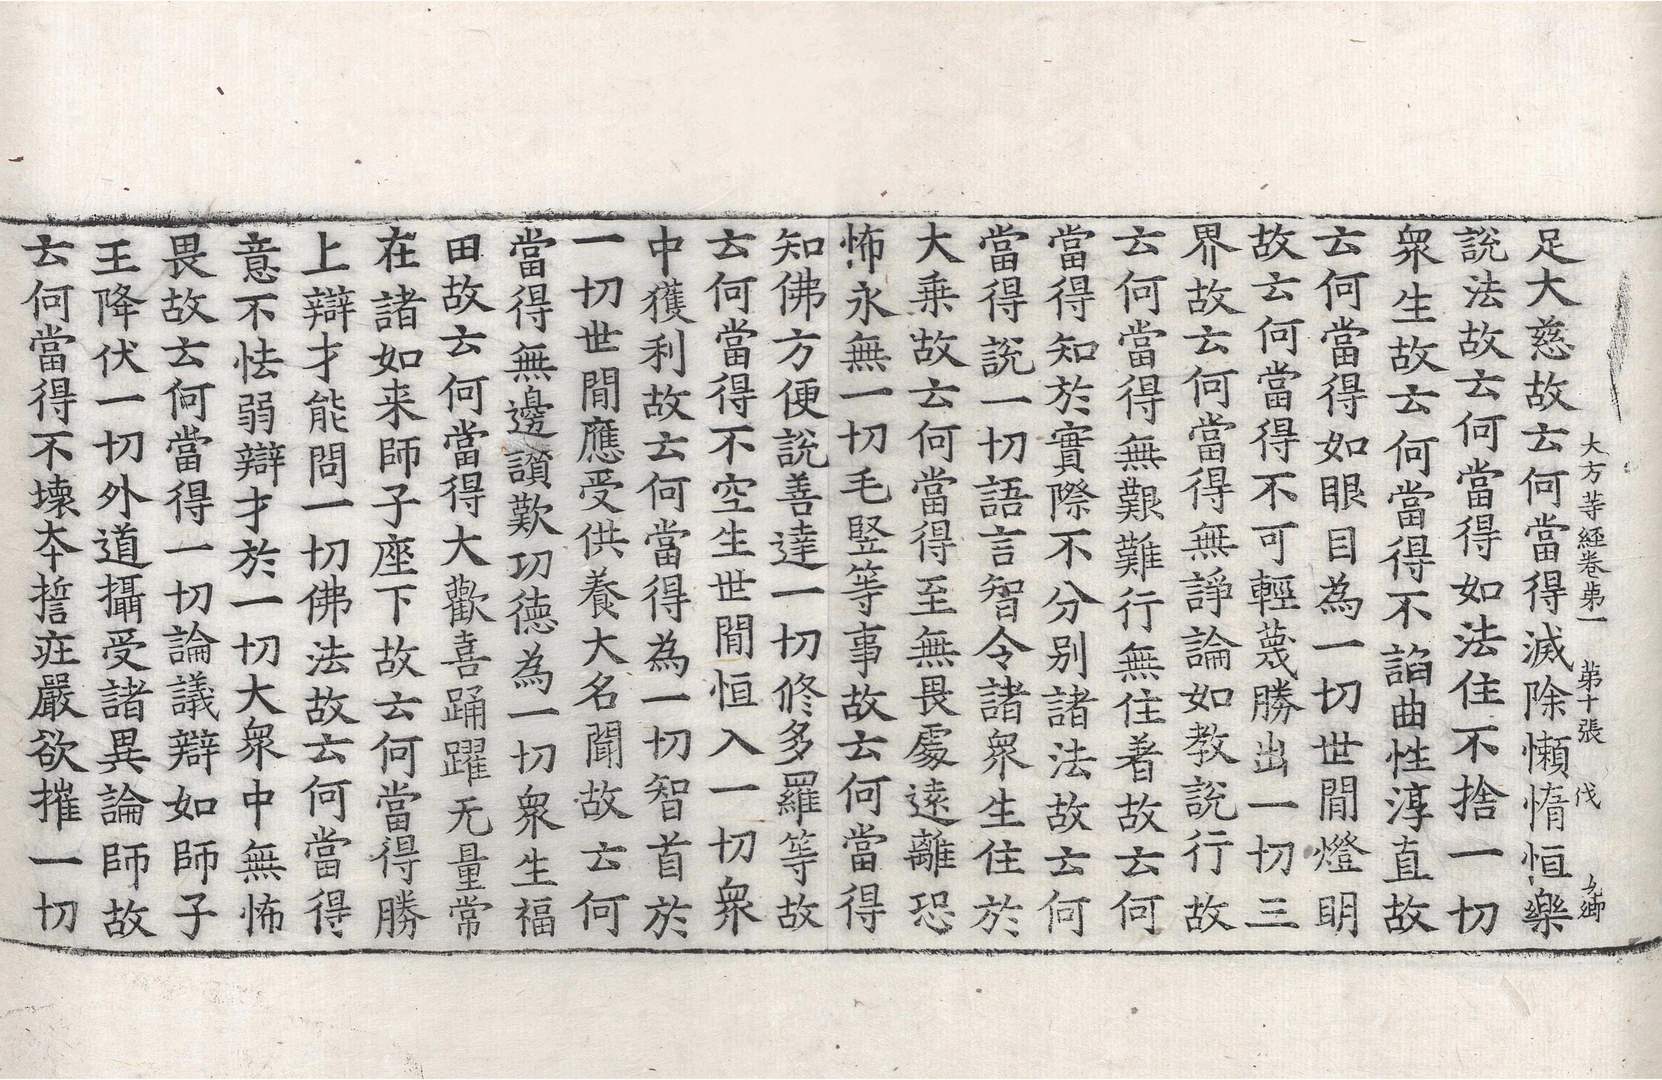 大方等経卷第一　第十張　伐　允卿
足大慈故去何當得滅除懶惰恒樂
說法故去何當得如法住不捨一切
衆生故去何當得不諂曲性淳直故
去何當得如眼目為一切世閒燈明
故去何當得不可輕蔑勝出一切三
界故去何當得無諍論如教說行故
去何當得無艱難行無住著故去何
當得知於實際不分别諸法故去何
當得說一切語言智令諸衆生住於
大乗故去何當得至無畏處遠離恐
怖永無一切毛竪等事故去何當得
知佛方便說善達一切修多羅等故
去何當得不空生世閒恒入一切衆
中獲利故去何當得為一切智首於
一切世閒應受供養大名聞故去何
當得無邊讃歎功德為一切衆生福
田故去何當得大歡喜踊躍无量常
在諸如来師子座下故去何當得勝
上辯才能問一切佛法故去何當得
意不怯弱辯才於一切大衆中無怖
畏故去何當得一切論議辯如師子
王降伏一切外道攝受諸異論師故
去何當得不壞夲誓㽵嚴欲摧一切